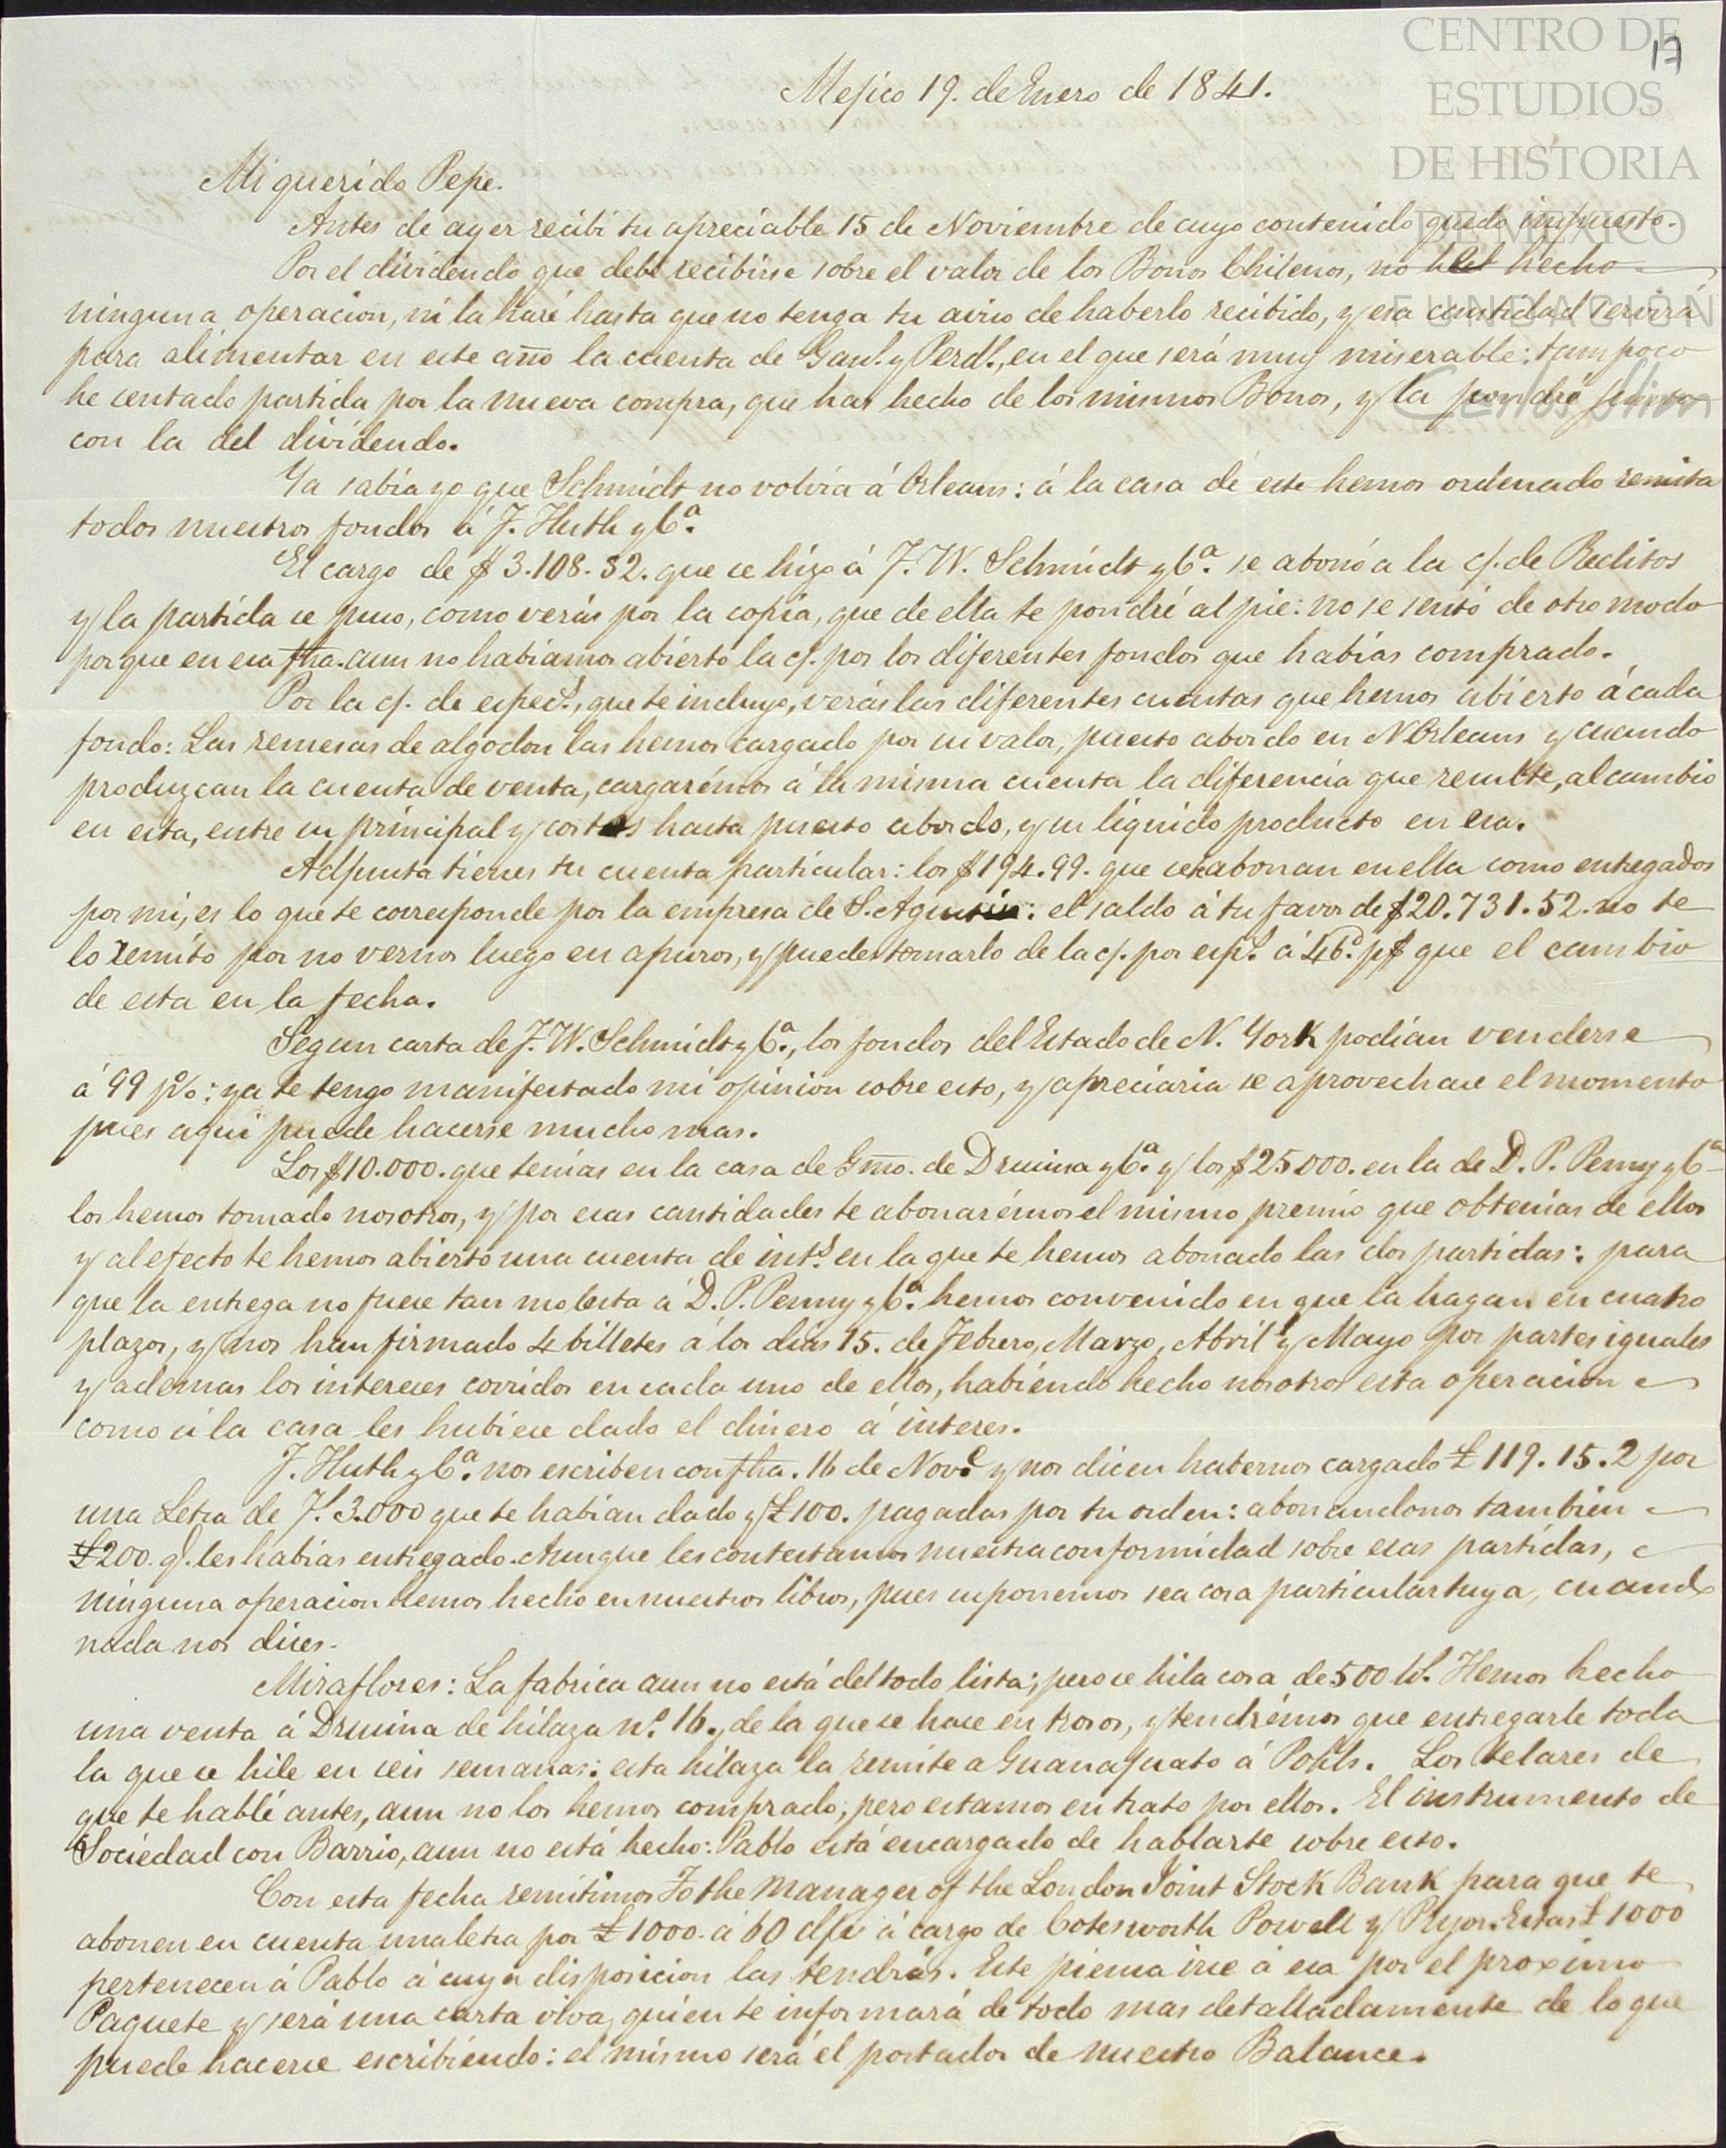 CENTRO DE
ESTUDIOS
DE HISTORIA
DE MEXICO
FUNDACIÓN
Carlos Slim
17
Mejico 19. de Enero de 1841.
Mi querido Pepe.
Antes de ayer recibi tu apreciable 15 de Noviembre de cuyo contenido quedo impuesto.
Por el dividendo que debe recibirse sobre el valor de los Bonos Chilenos, no hecho
ninguna operacion, ni la haré hasta que no tenga tu aviso de haberlo recibido, y esa cantidad servirá
para alimentar en este año la cuenta de Gan.s y Perd.s, en el que será muy miserable: tampoco
he sentado partida por la nueva compra, que has hecho de los mismos Bonos, y la pondré junto
con la del dividendo.
Ya sabia yo que Schmidt no volvia á Orleans: á la casa de este hemos ordenado remita
todos nuestros fondos á F. Huth y C.ª
El cargo de $ 3.108.32. que se hizo á J. W. Schmidt y C.ª se abonó a la c/. de Reditos
y la partida se puso, como verás por la copia, que de ella te pondré al pie: no se sentó de otro modo
porque en esa fha. aun no habiamos abierto la c/. por los diferentes fondos que habias comprado.
Por la c/. de espec.s, que te incluyo, verás las diferentes cuentas que hemos abierto á cada
fondo: Las remesas de algodon las hemos cargado por su valor, puesto abordo en N Orleans y cuando
produzcan la cuenta de venta, cargarémos á la misma cuenta la diferencia que resulte, al cambio
en esta, entre su principal y costos hasta puesto abordo, y su liquido producto en esa.
Adjunta tienes tu cuenta particular: los $ 194.99. que se abonan en ella como entregados
por mi, es lo que te corresponde por la empresa de S. Agustin: el saldo á tu favor de $ 20.731.52. no te
lo remito por no vernos luego en apuros, y puedes tomarlo de la c/. por esp.s á 46.d p$ que el cambio
de esta en la fecha.
Segun carta de J. W. Schmidt y C.ª, los fondos del Estado de N. York podian venderse
á 99 p%: ya te tengo manifestado mi opinion sobre esto, y apreciaria se aprovechase el momento
pues aqui puede hacerse mucho mas.
Los $ 10.000. que tenias en la casa de Gmo. de Drusina y C.ª y los $ 25.000. en la de D. P. Penny y C.ª
los hemos tomado nosotros, y por esas cantidades te abonarémos el mismo premio que obtenias de ellos
y al efecto te hemos abierto una cuenta de int.s en la que te hemos abonado las dos partidas: para
que la entrega no fuese tan molesta á D. P. Penny y C.ª hemos convenido en que la hagan en cuatro
plazos, y nos han firmado 4 billetes á los dias 15. de Febrero, Marzo, Abril y Mayo por partes iguales
y ademas los intereses corridos en cada uno de ellos, habiendo hecho nosotros esta operacion
como si la casa les hubiese dado el dinero á interes.
F. Huth y C.ª nos escriben con fha. 16 de Nov.e y nos dicen habernos cargado £ 119.15.2 por
una Letra de F. 3.000 que te habian dado y £ 100. pagadas por tu orden: abonandonos tambien
£ 200. q.e les habias entregado. Aunque les contestamos nuestra conformidad sobre esas partidas,
ninguna operacion hemos hecho en nuestros libros, pues suponemos sea cosa particular tuya, cuando
nada nos dices.
Miraflores: La fabrica aun no está del todo lista; pero se hila cosa de 500 lb. Hemos hecho
una venta á Drusina de hilaza n.º 16., de la que se hace en trosos, y tendrémos que entregarle toda
la que se hile en seis semanas: esta hilaza la remite a Guanajuato á Pohls. Los telares de
que te hablé antes, aun no los hemos comprado; pero estamos en trato por ellos. El instrumento de
Sociedad con Barrio, aun no está hecho: Pablo está encargado de hablarte sobre esto.
Con esta fecha remitimos To the Manager of the London Joint Stock Bank para que te
abonen en cuenta una letra por £ 1000. á 60 d/v á cargo de Cotesworth Powell y Pryor. Estas £ 1000
pertenecen á Pablo á cuya disposicion las tendrás. Este piensa irse á esa por el proximo
Paquete y será una carta viva, quien te informará de todo mas detalladamente de lo que
puede hacerse escribiendo: el mismo será el portador de nuestro Balance.